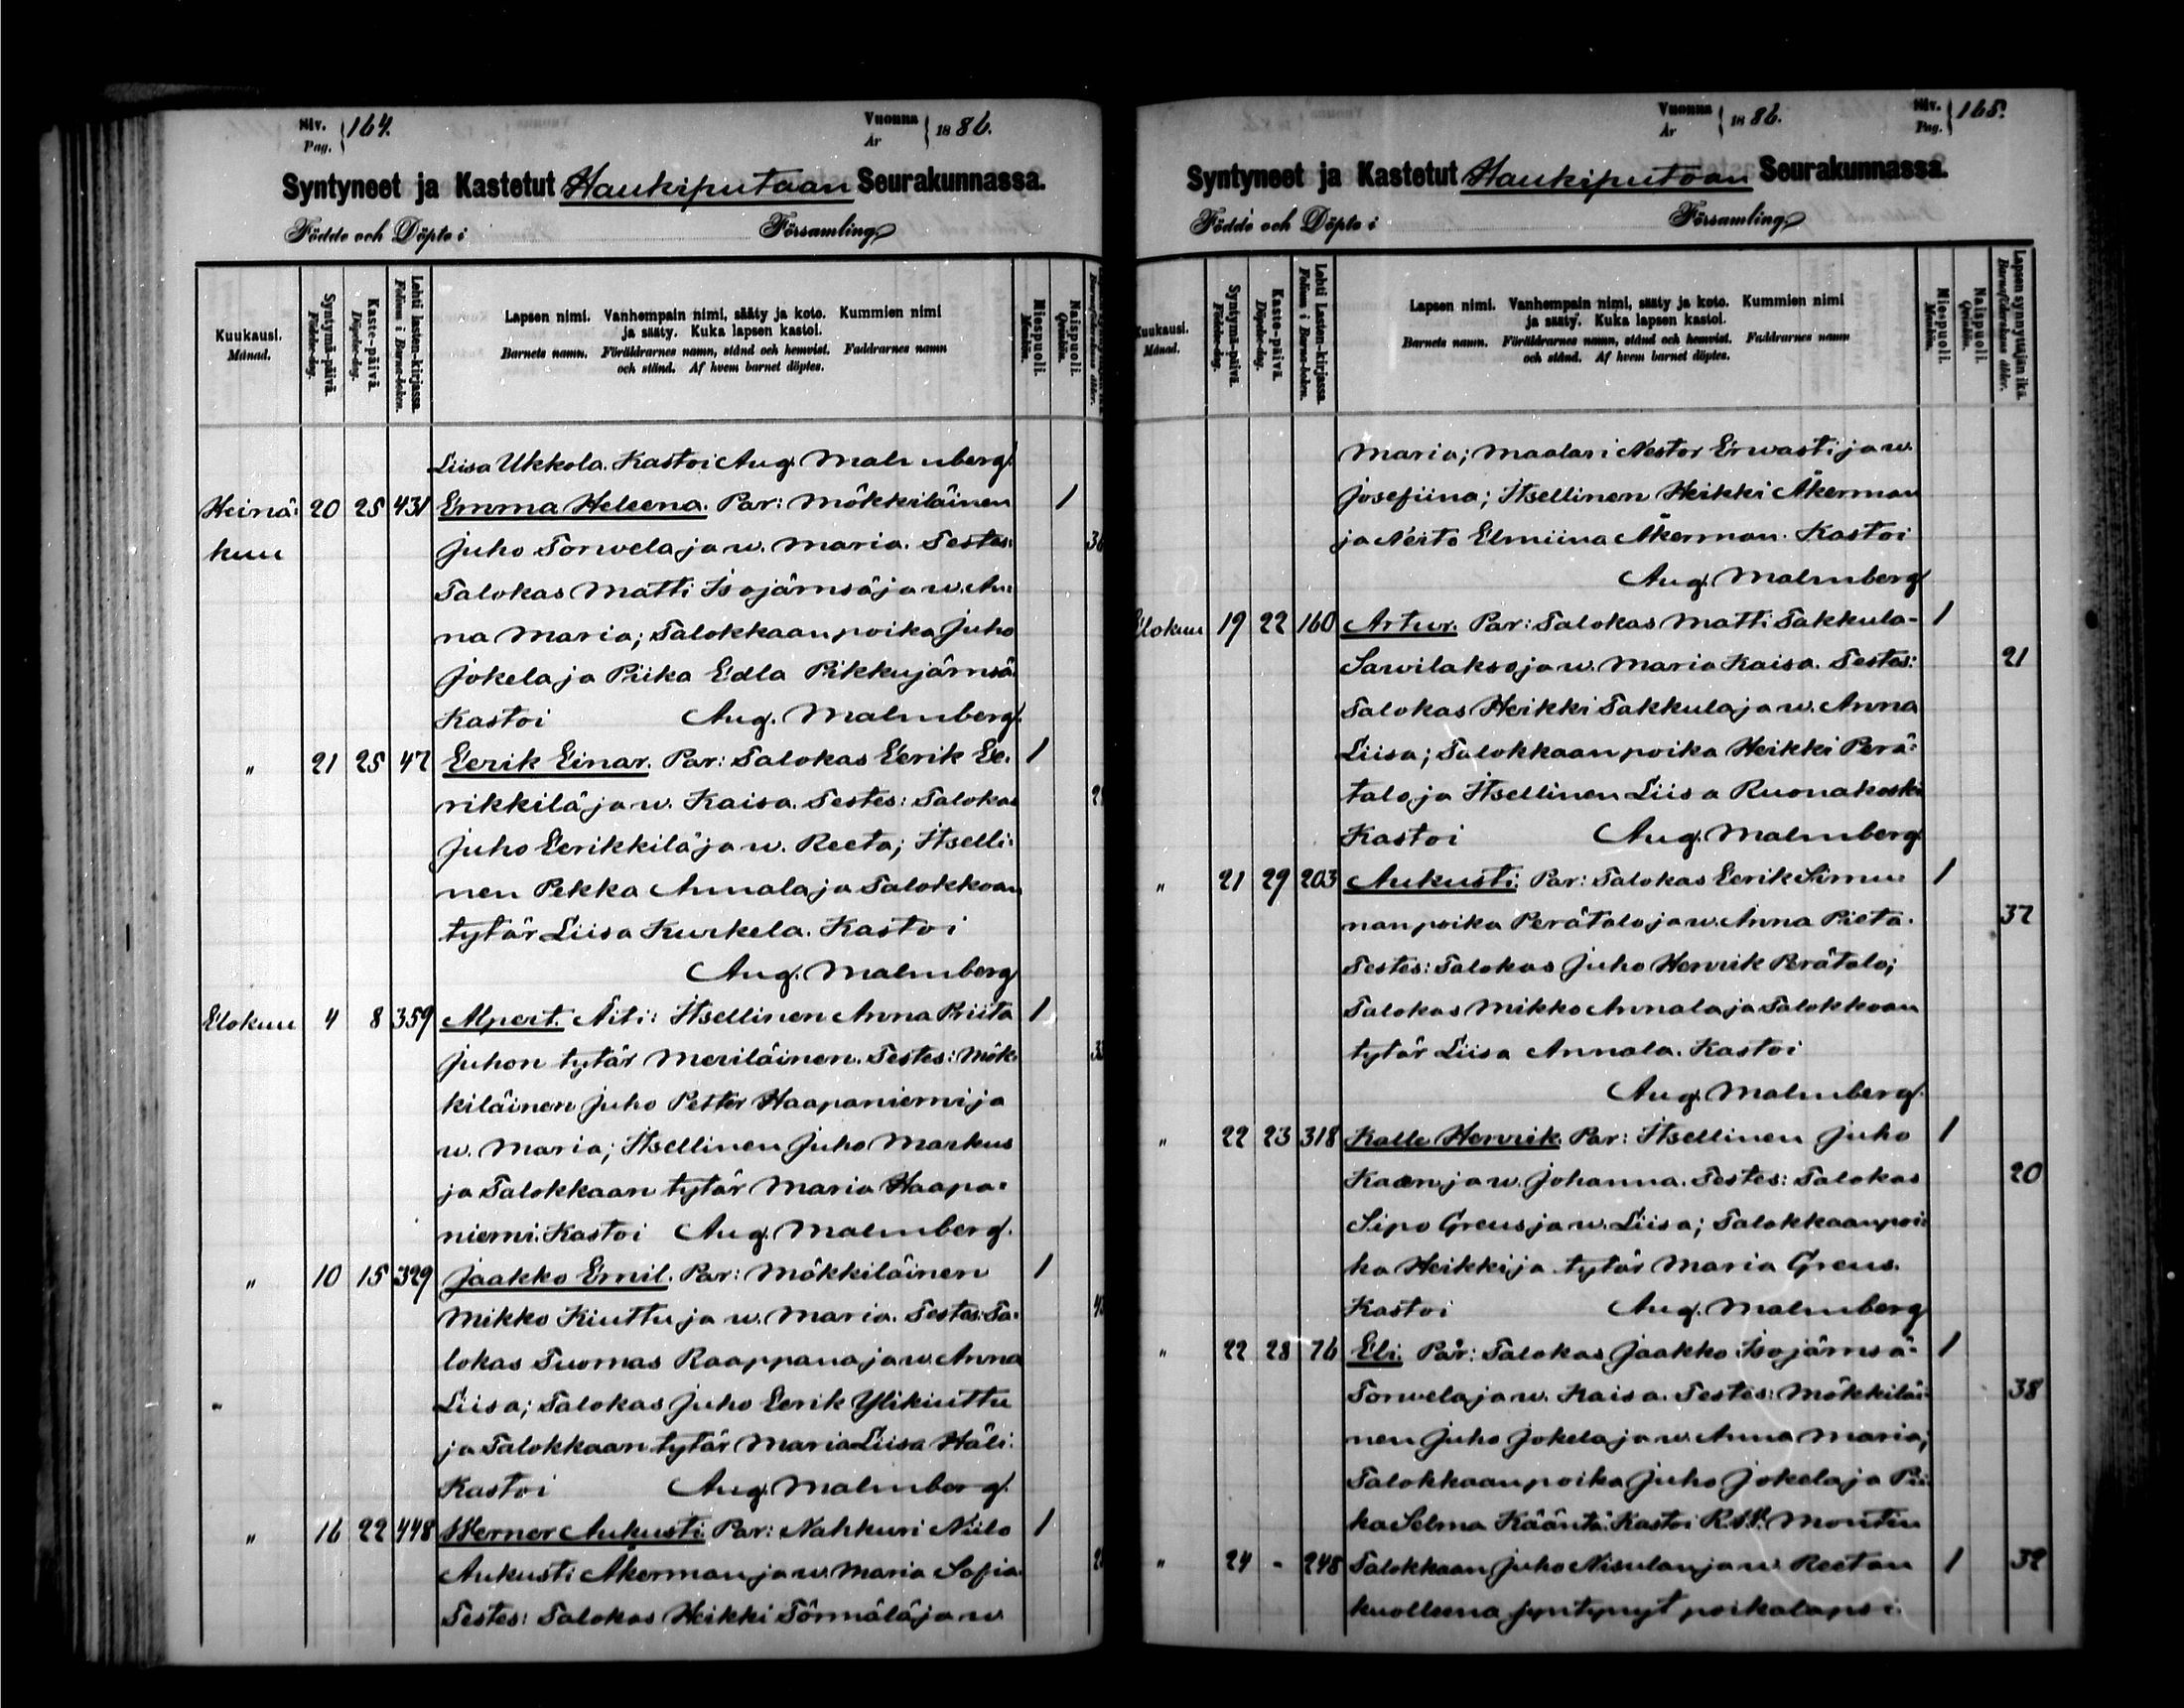 Siv. Pag. } 164.
Vuonna År } 1886.
Syntyneet ja Kastetut Haukiputaan Seurakunnassa.
Födde och Döpte i Församling
Kuukausi. Månad.
Syntymä-päivä. Födelse-dag.
Kaste-päivä. Döpelse-dag.
Lehti lasten-kirjassa. Folium i Barna-boken.
Lapsen nimi. Vanhempain nimi, sääty ja koto. Kummien nimi
ja sääty. Kuka lapsen kastoi.
Barnets namn. Föräldrarnes namn, stånd och hemvist. Faddrarnes namn
och stånd. Af hvem barnet döptes.
Miespuoli. Mankön.
Naispuoli. Qvinkön.
Liisa Ukkola. Kastoi Aug. Malmberg.
Heinä- 20 25 431 Emma Heleena. Par: Mökkiläinen 1
kuu Juho Torwela ja w. Maria. Testes:
Talokas Matti Isojämsä ja w. An-
na Maria; Talokkaan poika Juho
Jokela ja Piika Edla Pikkujämsä.
Kastoi Aug. Malmberg.
" 21 25 47 Eerik Einar. Par: Talokas Eerik Ee- 1
rikkilä ja w. Kaisa. Testes: Talokas
Juho Eerikkilä ja w. Reeta; Itselli-
nen Pekka Annala ja Talokkaan
tytär Liisa Kurkela. Kastoi
Aug. Malmberg
Elokuu 4 8 359 Alpert. Äiti: Itsellinen Anna Priita 1
Juhon tytär Meriläinen. Testes: Mök-
kiläinen Juho Petter Haapaniemi ja
w. Maria; Itsellinen Juho Markus
ja Talokkaan tytär Maria Haapa-
niemi. Kastoi Aug. Malmberg.
" 10 15 329 Jaakko Emil. Par: Mökkiläinen 1
Mikko Kiuttu ja w. Maria. Testes: Ta-
lokas Tuomas Raappana ja w. Anna
Liisa; Talokas Juho Eerik Ylikiuttu
ja Talokkaan tytär Maria Liisa Häli.
Kastoi Aug. Malmberg.
" 16 22 448 Werner Aukusti. Par: Nahkuri Niilo 1
Aukusti Åkerman ja w. Maria Sofia.
Testes: Talokas Heikki Törmälä ja w.
Vuonna År } 1886.
Siv. Pag. } 165.
Syntyneet ja Kastetut Haukiputaan Seurakunnassa.
Födde och Döpte i Församling
Kuukausi. Månad.
Syntymä-päivä. Födelse-dag.
Kaste-päivä. Döpelse-dag.
Lehti Lasten-kirjassa. Folium i Barna-boken.
Lapsen nimi. Vanhempain nimi, sääty ja koto. Kummien nimi
ja sääty. Kuka lapsen kastoi.
Barnets namn. Föräldrarnes namn, stånd och hemvist. Faddrarnes namn
och stånd. Af hvem barnet döptes.
Miespuoli. Mankön.
Naispuoli. Qvinkön.
Lapsen synnyttäjän ikä. Barnaföderskans ålder.
Maria; Maalari Nestor Erwasti ja w.
Josefiina; Itsellinen Heikki Åkerman
ja Neito Elmiina Åkerman. Kastoi
Aug. Malmberg
Elokuu 19 22 160 Artur. Par: Talokas Matti Takkula- 1
Sarvilakso ja w. Maria Kaisa. Testes: 21
Talokas Heikki Takkula ja w. Anna
Liisa; Talokkaan poika Heikki Perä-
talo ja Itsellinen Liisa Ruonakoski
Kastoi Aug. Malmberg.
" 21 29 203 Aukusti. Par: Talokas Eerik Simu- 1
nanpoika Perätalo ja w. Anna Pieta. 37
Testes: Talokas Juho Henrik Perätalo;
Talokas Mikko Annala ja Talokkaan
tytär Liisa Annala. Kastoi
Aug. Malmberg.
" 22 23 318 Kalle Henrik. Par: Itsellinen Juho 1
ja w. Johanna. Testes: Talokas 20
Sipo Greus ja w. Liisa; Talokkaanpoi-
ka Heikki ja tytär Maria Greus.
Kastoi Aug. Malmberg
" 22 28 76 Eli. Par: Talokas Jaakko Isojämsä- 1
Torwela ja w. Kaisa. Testes: Mökkiläi- 38
nen Juho Jokela ja w. Anna Maria;
Talokkaan poika Juho Jokela ja Pii-
ka Selma Kääntä. Kastoi Montin
" 24 - 248 Talokkaan Juho Nisulan ja w. Reetan 1 32
kuolleena syntynyt poikalapsi.